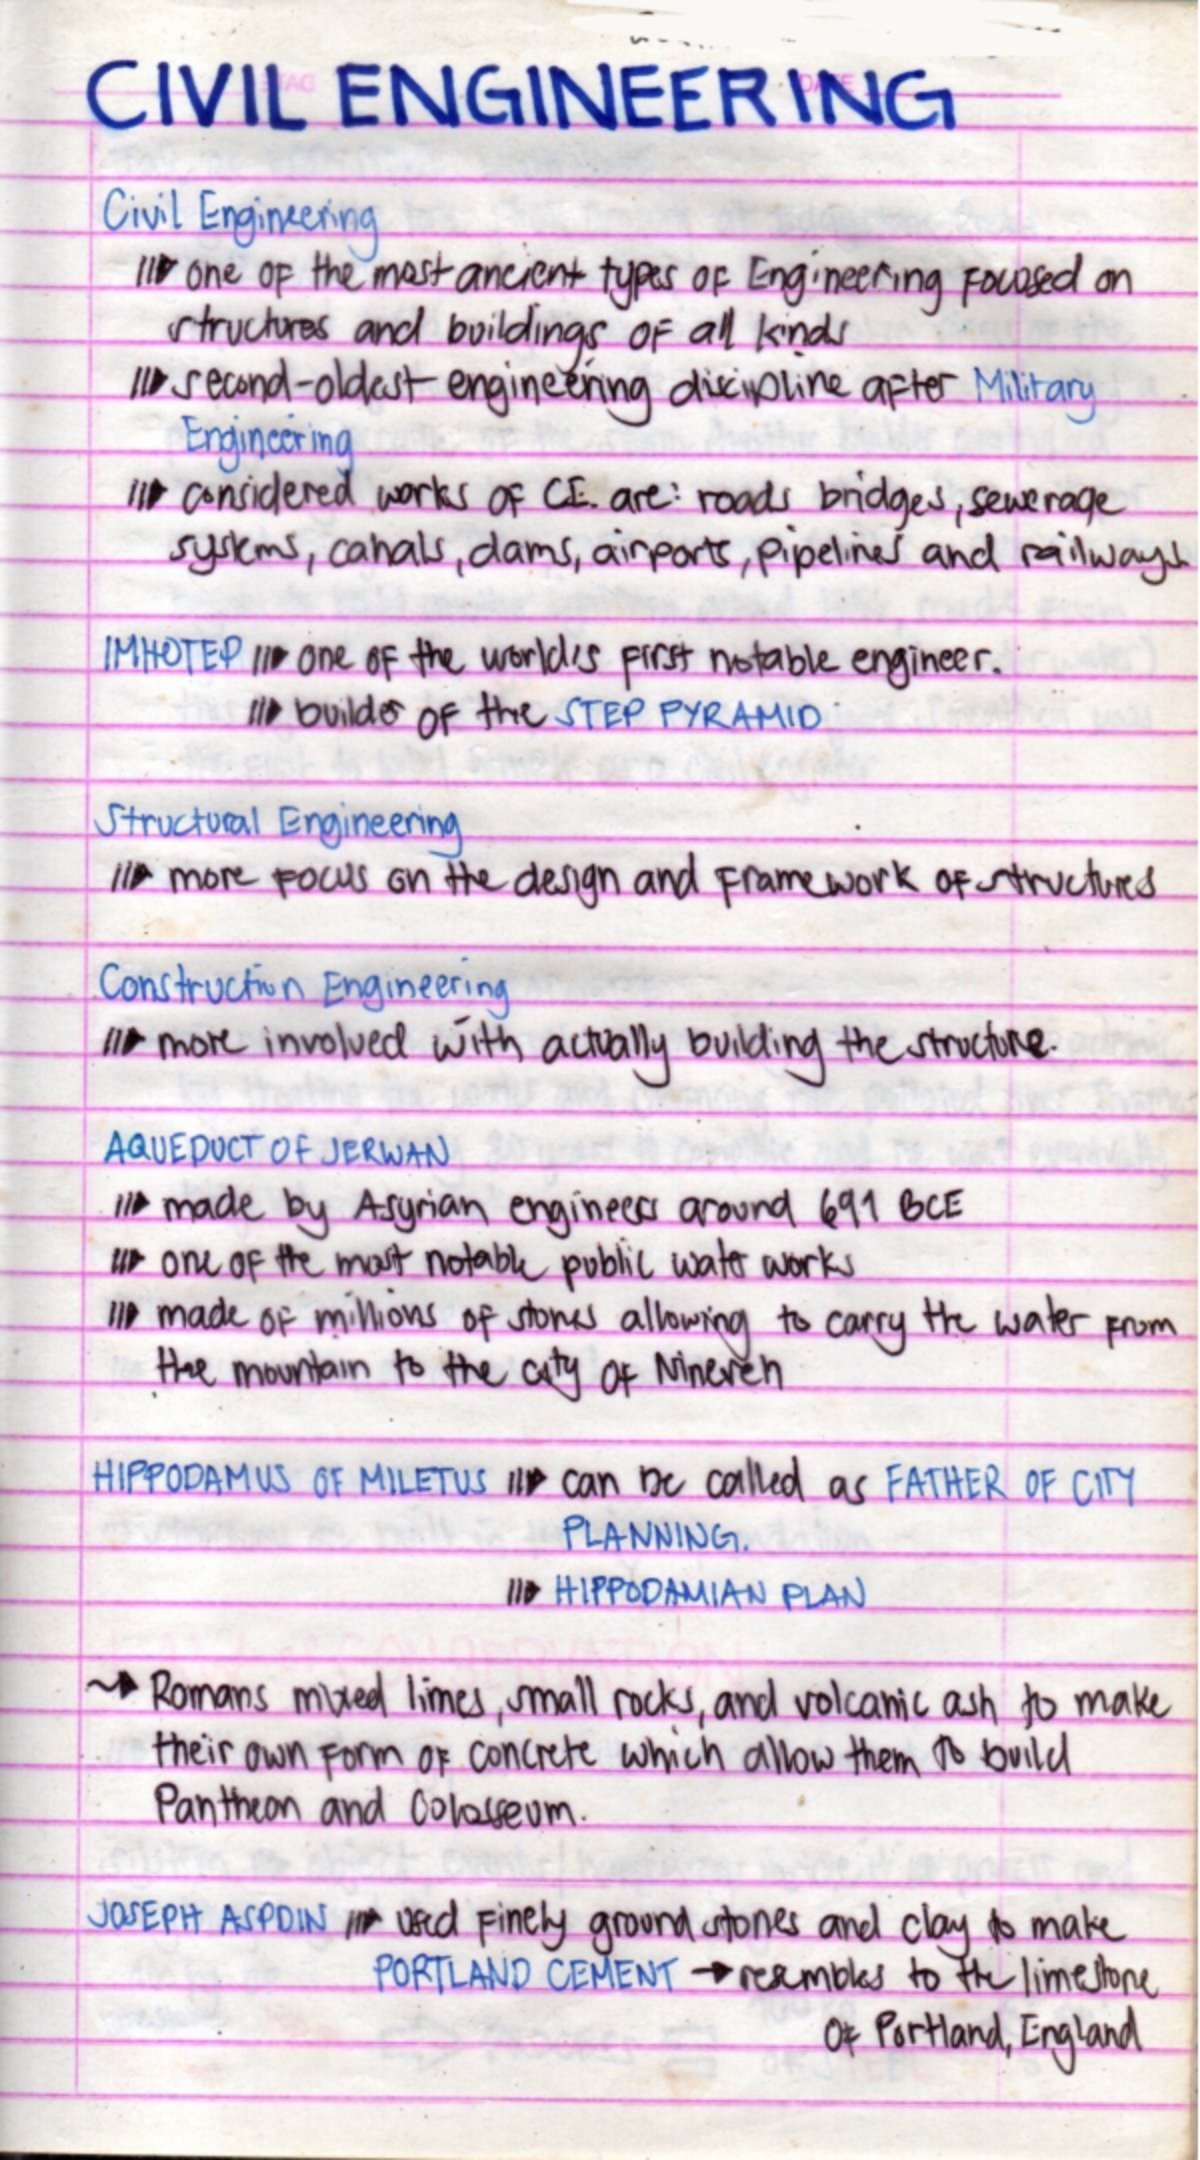 CIVIL ENGINEERING
Civil Engineering
one of the most ancient types of Engineering focused on
structures and buildings of all kinds
second-oldest engineering discipline after Military
Engineering
considered works of C.E. are: roads bridges, sewerage
systems, canals, dams, airports, pipelines and railways
IMHOTEP one of the world's first notable engineer.
builder of the STEP PYRAMID
Structural Engineering
more focus on the design and framework of structures
Construction Engineering
more involved with actually building the structure.
AQUEDUCT OF JERWAN
made by Asyrian engineers around 691 BCE
one of the most notable public water works
made of millions of stones allowing to carry the water from
the mountain to the city of Nineveh
HIPPODAMUS OF MILETUS can be called as FATHER OF CITY
PLANNING.
HIPPODAMIAN PLAN
Romans mixed limes, small rocks, and volcanic ash to make
their own form of concrete which allow them to build
Pantheon and Colosseum.
JOSEPH ASPDIN used finely ground stones and clay to make
PORTLAND CEMENT → resembles to the limestone
of Portland, England